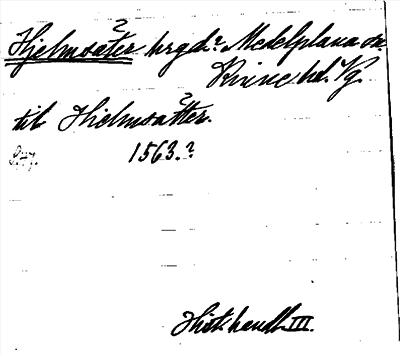 Hjelmsäter? hrgd.? Medelplana sn
Kinne hd. Vg.
til Hielmsätter.?
1563.?
Hist. handl. III.